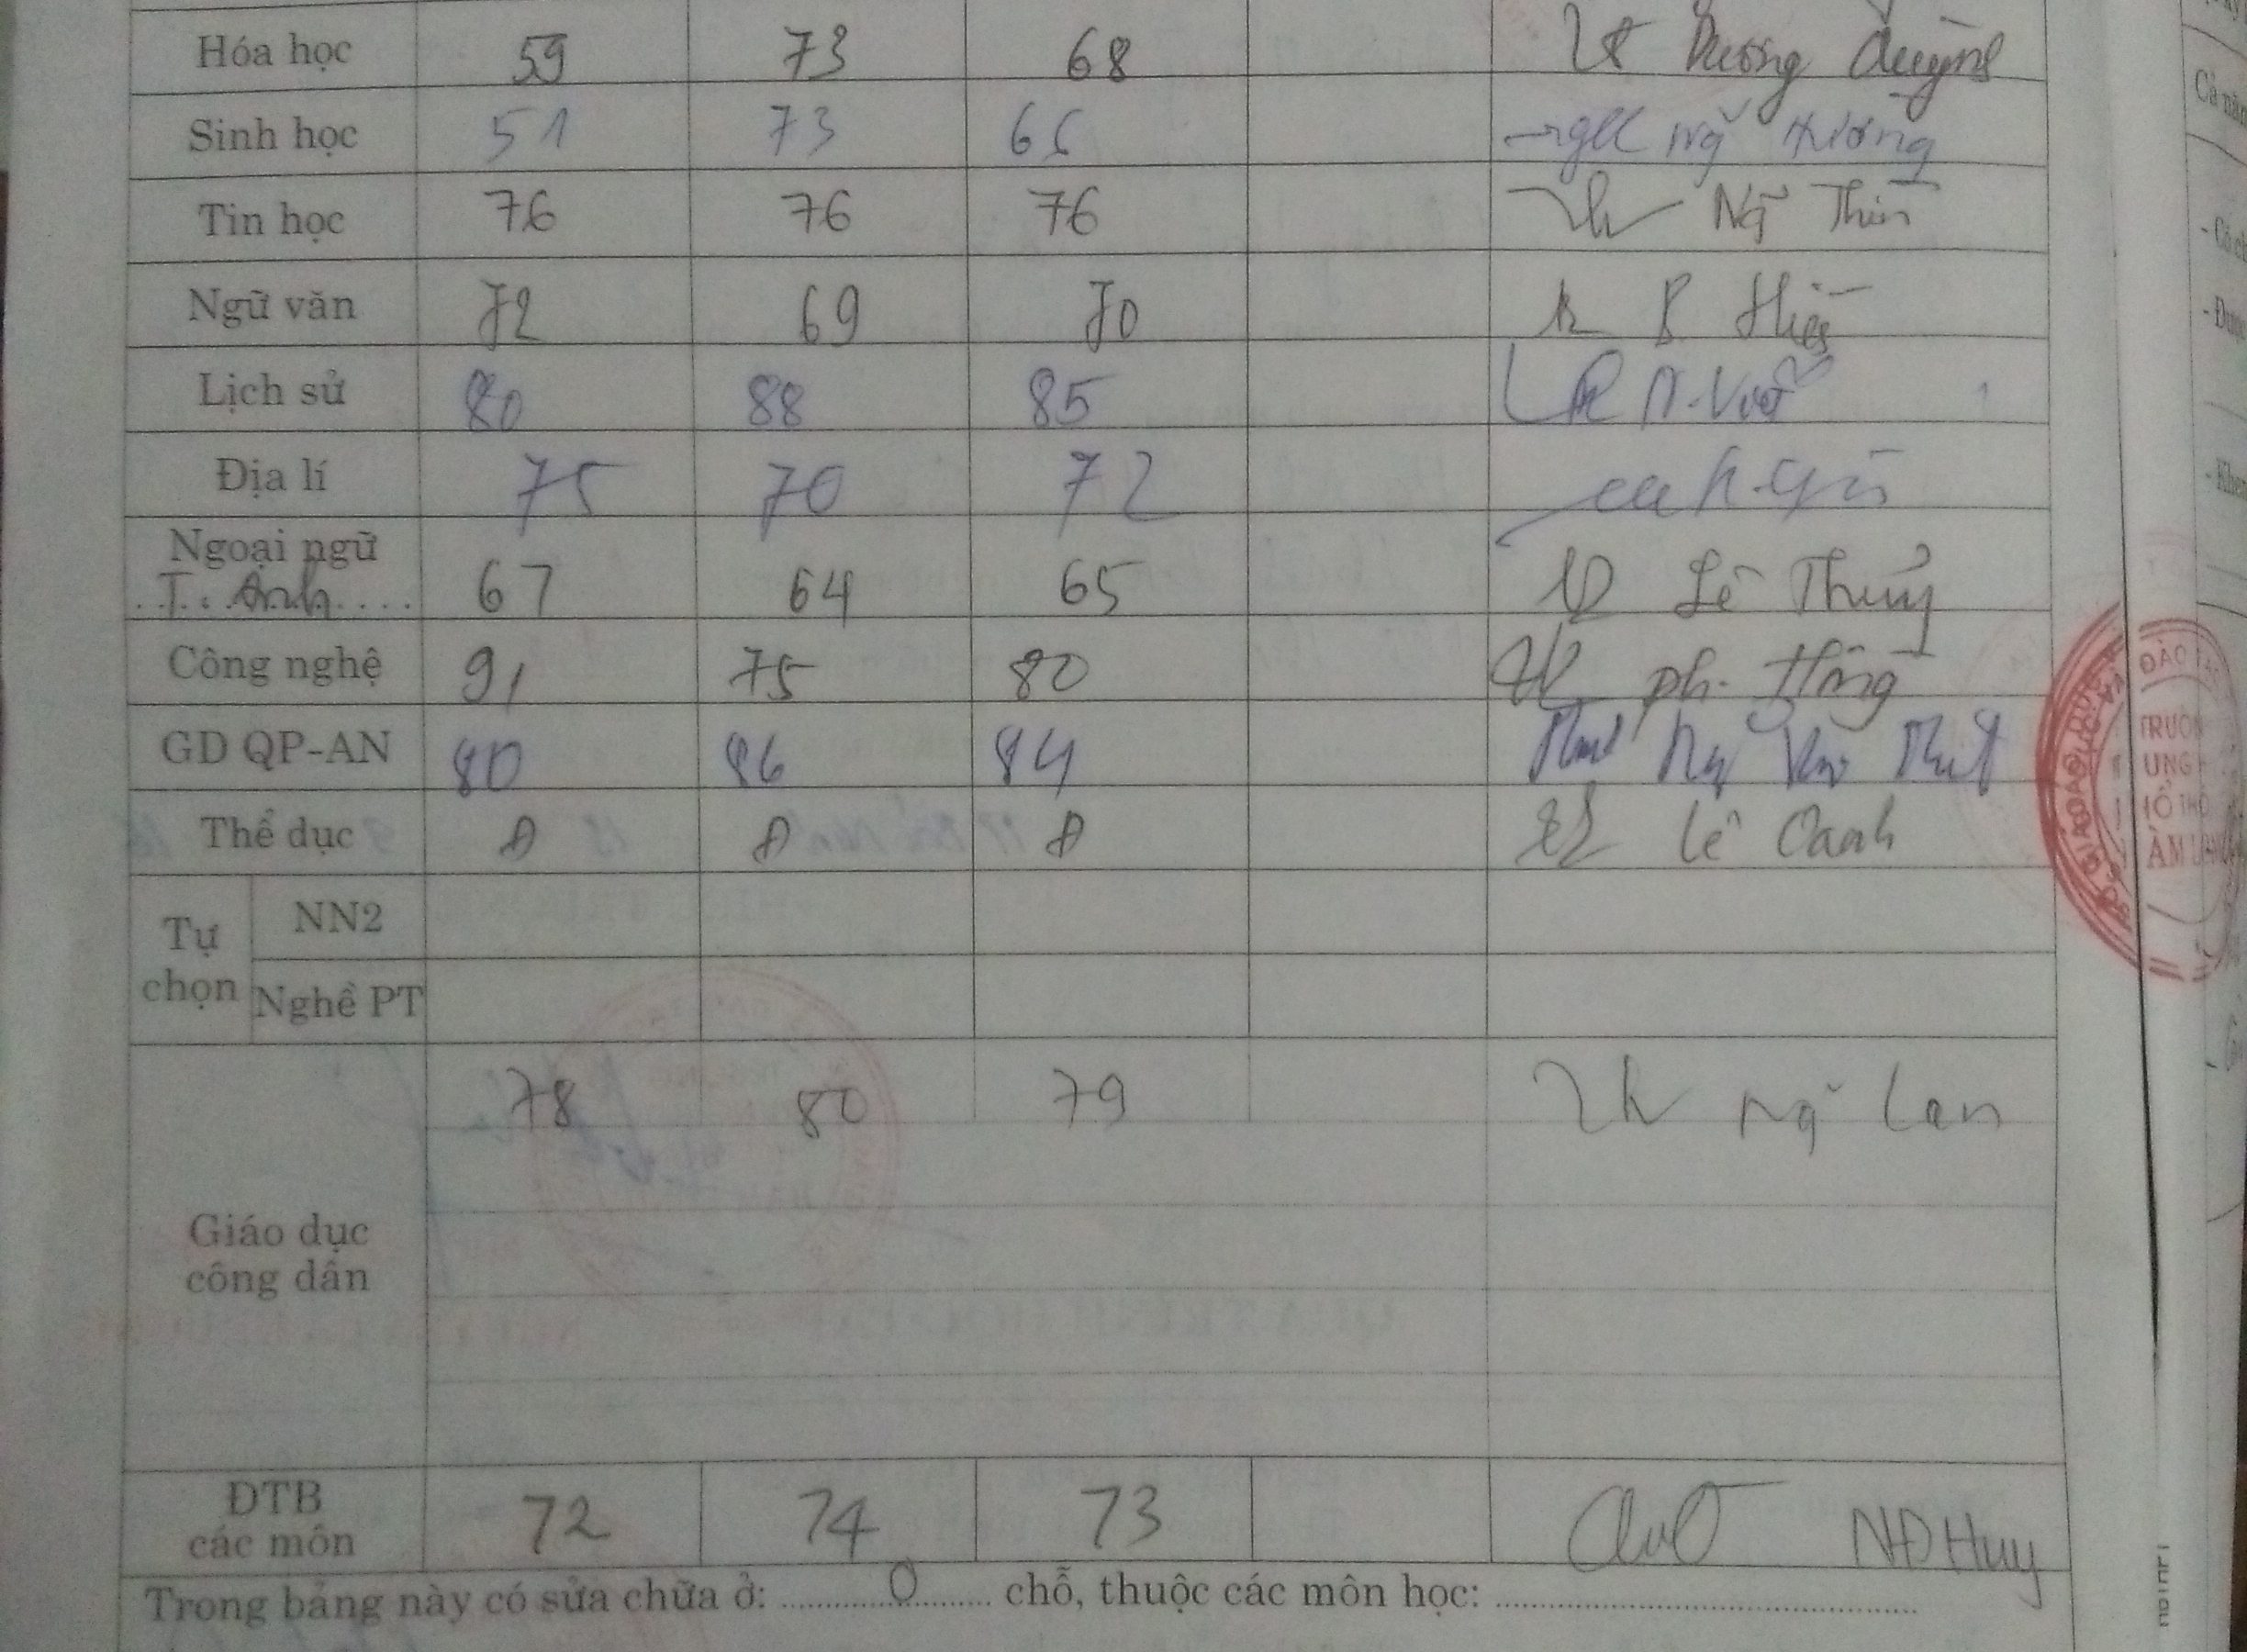 Hóa học 59 73 68 Dương Quỳnh
Sinh học 51 73 66 Ng Hương
Tin học 76 76 76 Ng Thìn
Ngữ văn 72 69 70
Lịch sử 80 88 85
Địa lí 75 70 72
Ngoại ngữ
T. Anh 67 64 65 Lê Thủy
Công nghệ 91 75 80 ph. Hồng
GD QP-AN 80 86 84
Thể dục Đ Đ Đ Lê Oanh
Tự chọn
NN2
Nghề PT
Giáo dục công dân 78 80 79 Ng Lan
ĐTB các môn 72 74 73 NĐHuy
Trong bảng này có sửa chữa ở: 0 chỗ, thuộc các môn học:
ĐÀO
TRƯỜN
UNG